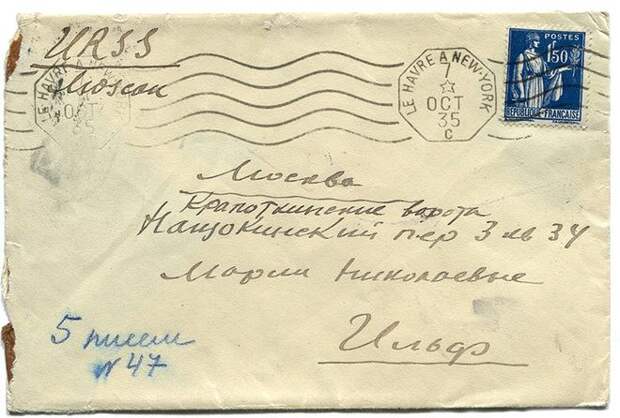 URSS
Moscou
LE HAVRE A NEW-YORK
OCT
35
LE HAVRE A NEW-YORK
7
OCT
35
C
POSTES
1F50
REPUBLIQUE-FRANÇAISE
Москва
Крапоткинские ворота
Нащокинский пер 3 кв 34
Марии Николаевне
Ильф
5 писем
N 47